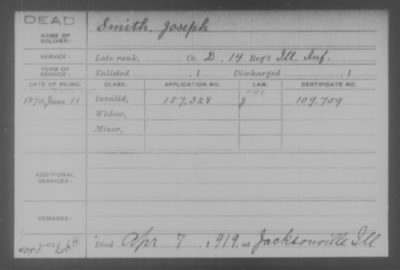 DEAD
NAME OF SOLDIER: Smith, Joseph
SERVICE: Late rank, Co. D, 14 Reg't Ill. Inf.
TERM OF SERVICE: Enlisted , 1 Discharged , 1
DATE OF FILING. CLASS. APPLICATION NO. LAW. CERTIFICATE NO.
1870, June 11 Invalid, 157.328 109.759
Widow,
Minor,
ADDITIONAL SERVICES:
REMARKS:
Died Apr 7, 1919, at Jacksonville Ill